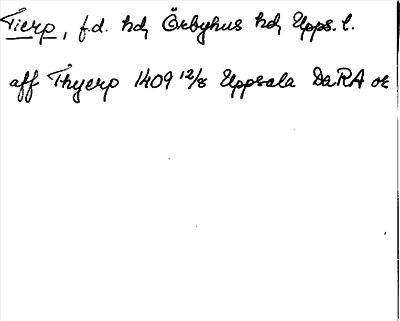 Tierp, f.d. hd, Örbyhus hd, Upps. l.
aff Thyerp 1409 12/8 Uppsala DaRA or